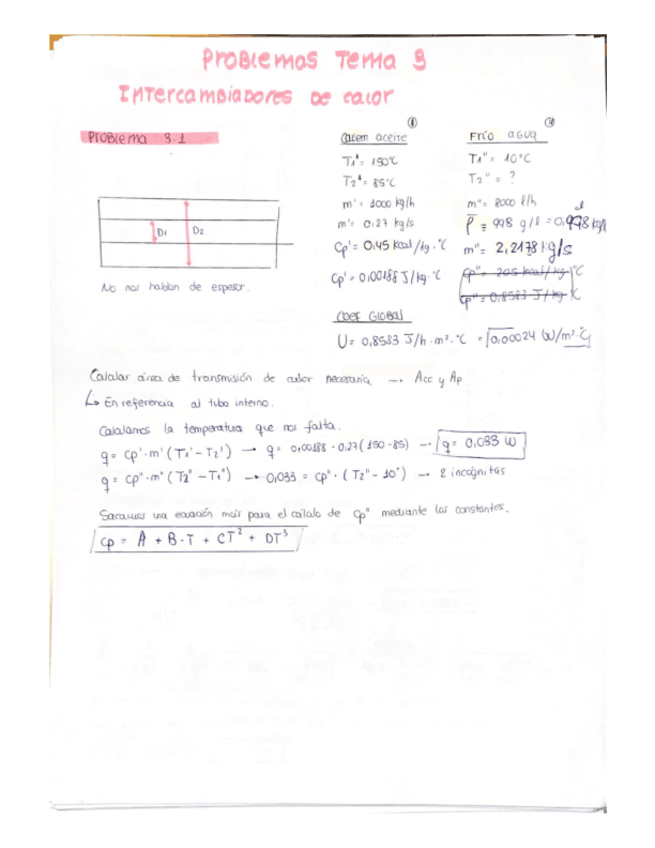 Problemas Tema 3
Intercambiadores de calor
Problema 3.1
① Calem aceite
T1' = 150°C
T2' = 85°C
m' = 1000 kg/h
m' = 0.27 kg/s
Cp' = 0.45 kcal/kg.°C
Cp' = 0,00188 J/kg.°C
Frío agua
T1'' = 10°C
T2'' = ?
m'' = 8000 l/h
ρ = 998 g/l = 0,998 kg/l
m'' = 2,2178 kg/s
D1
D2
No nos hablan de espesor.
Coef Global
U = 0,8583 J/h.m².°C = 0,00024 W/m².°C
Calcular área de transmisión de calor necesaria → Acc y Ap
↳ En referencia al tubo interno.
Calculamos la temperatura que nos falta.
q = cp'.m' (T1' - T2') → q = 0,00188 . 0,27 (150 - 85) → q = 0,033 W
q = cp''.m'' (T2'' - T1'') → 0,033 = cp'' . (T2'' - 10°) → 2 incógnitas
Sacamos una ecuación más para el cálculo de cp'' mediante las constantes.
cp = A + B.T + CT² + DT³